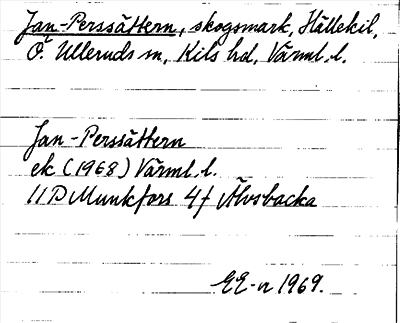 Jan-Perssättern, skogsmark, Hällekil,
Ö. Ulleruds sn, Kils hd, Värml. l.
Jan-Perssättern
ek (1968) Värml. l.
11D Munkfors 4f Älvsbacka
EE-n 1969.